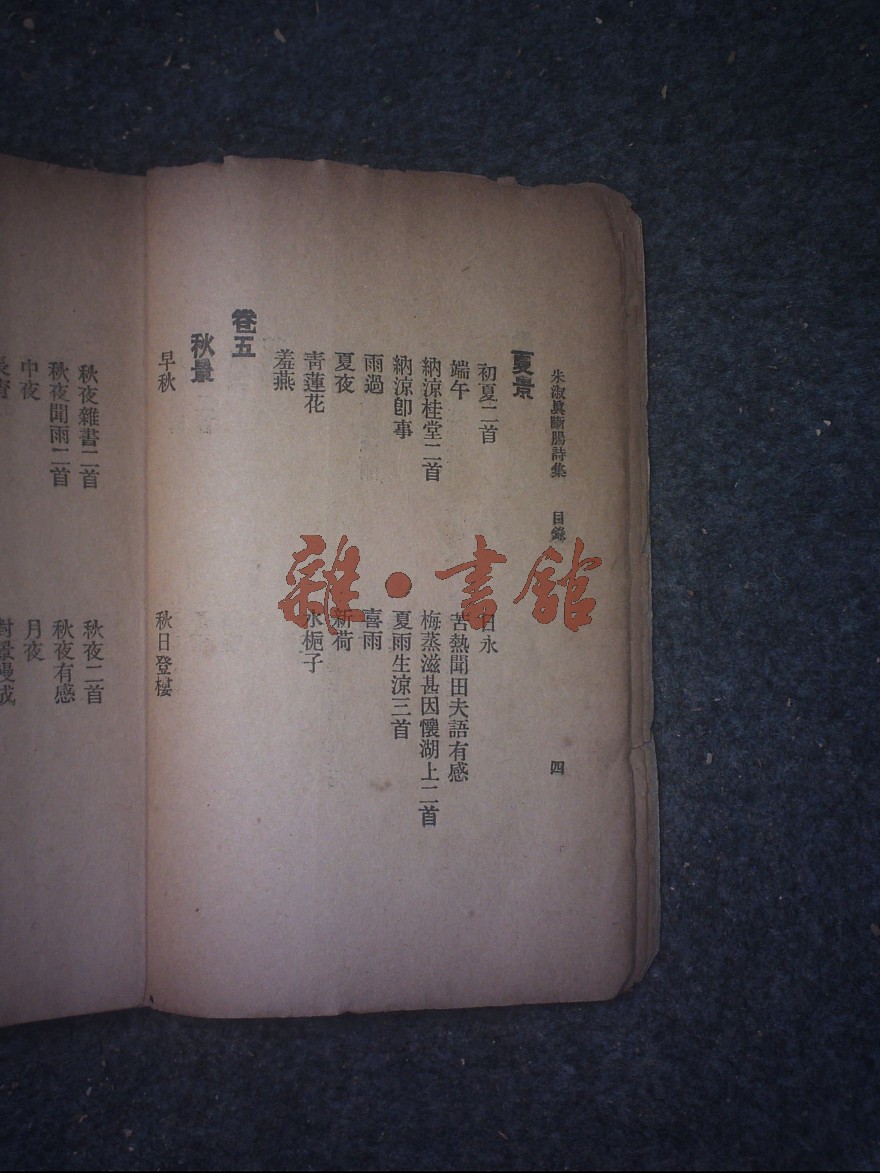 朱淑眞斷腸詩集 目錄 四
夏景
初夏二首 日永
端午 苦熱聞田夫語有感
納涼桂堂二首 梅蒸滋甚因懷湖上二首
納涼卽事 夏雨生涼三首
雨過 喜雨
夏夜 新荷
靑蓮花 水梔子
羞燕
卷五
秋景
早秋 秋日登樓
秋夜雜書二首 秋夜二首
秋夜聞雨二首 秋夜有感
中夜 月夜
對景漫成
雜·書館